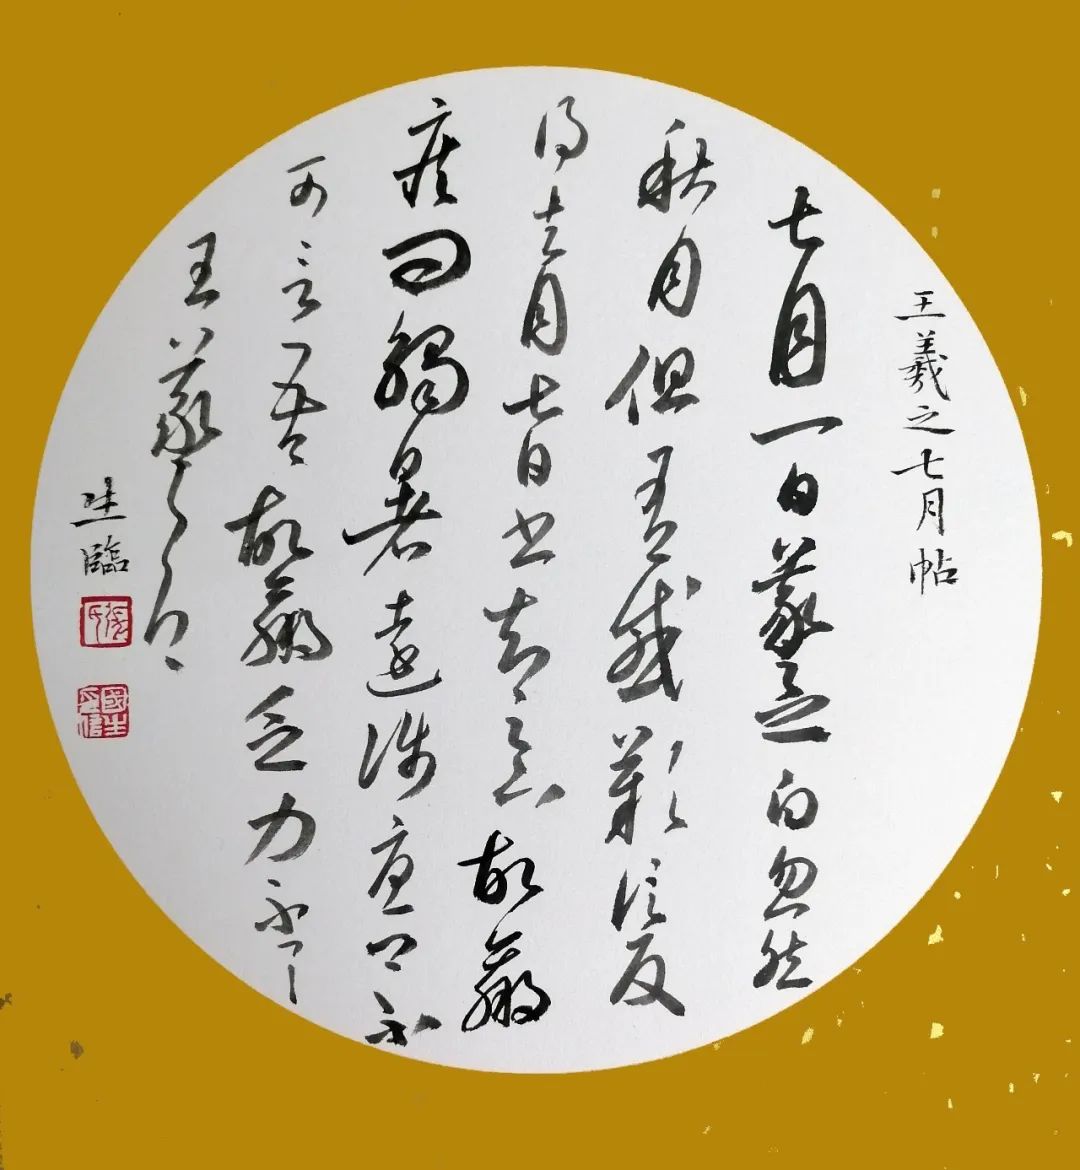 王羲之七月帖
七月一日羲之白忽然
秋月但有感歎信反
得去月七日書知足下故羸
疾問觸暑遠涉憂卿不
可言吾故羸乏力不具
王羲之白
生臨
張氏
國生印信